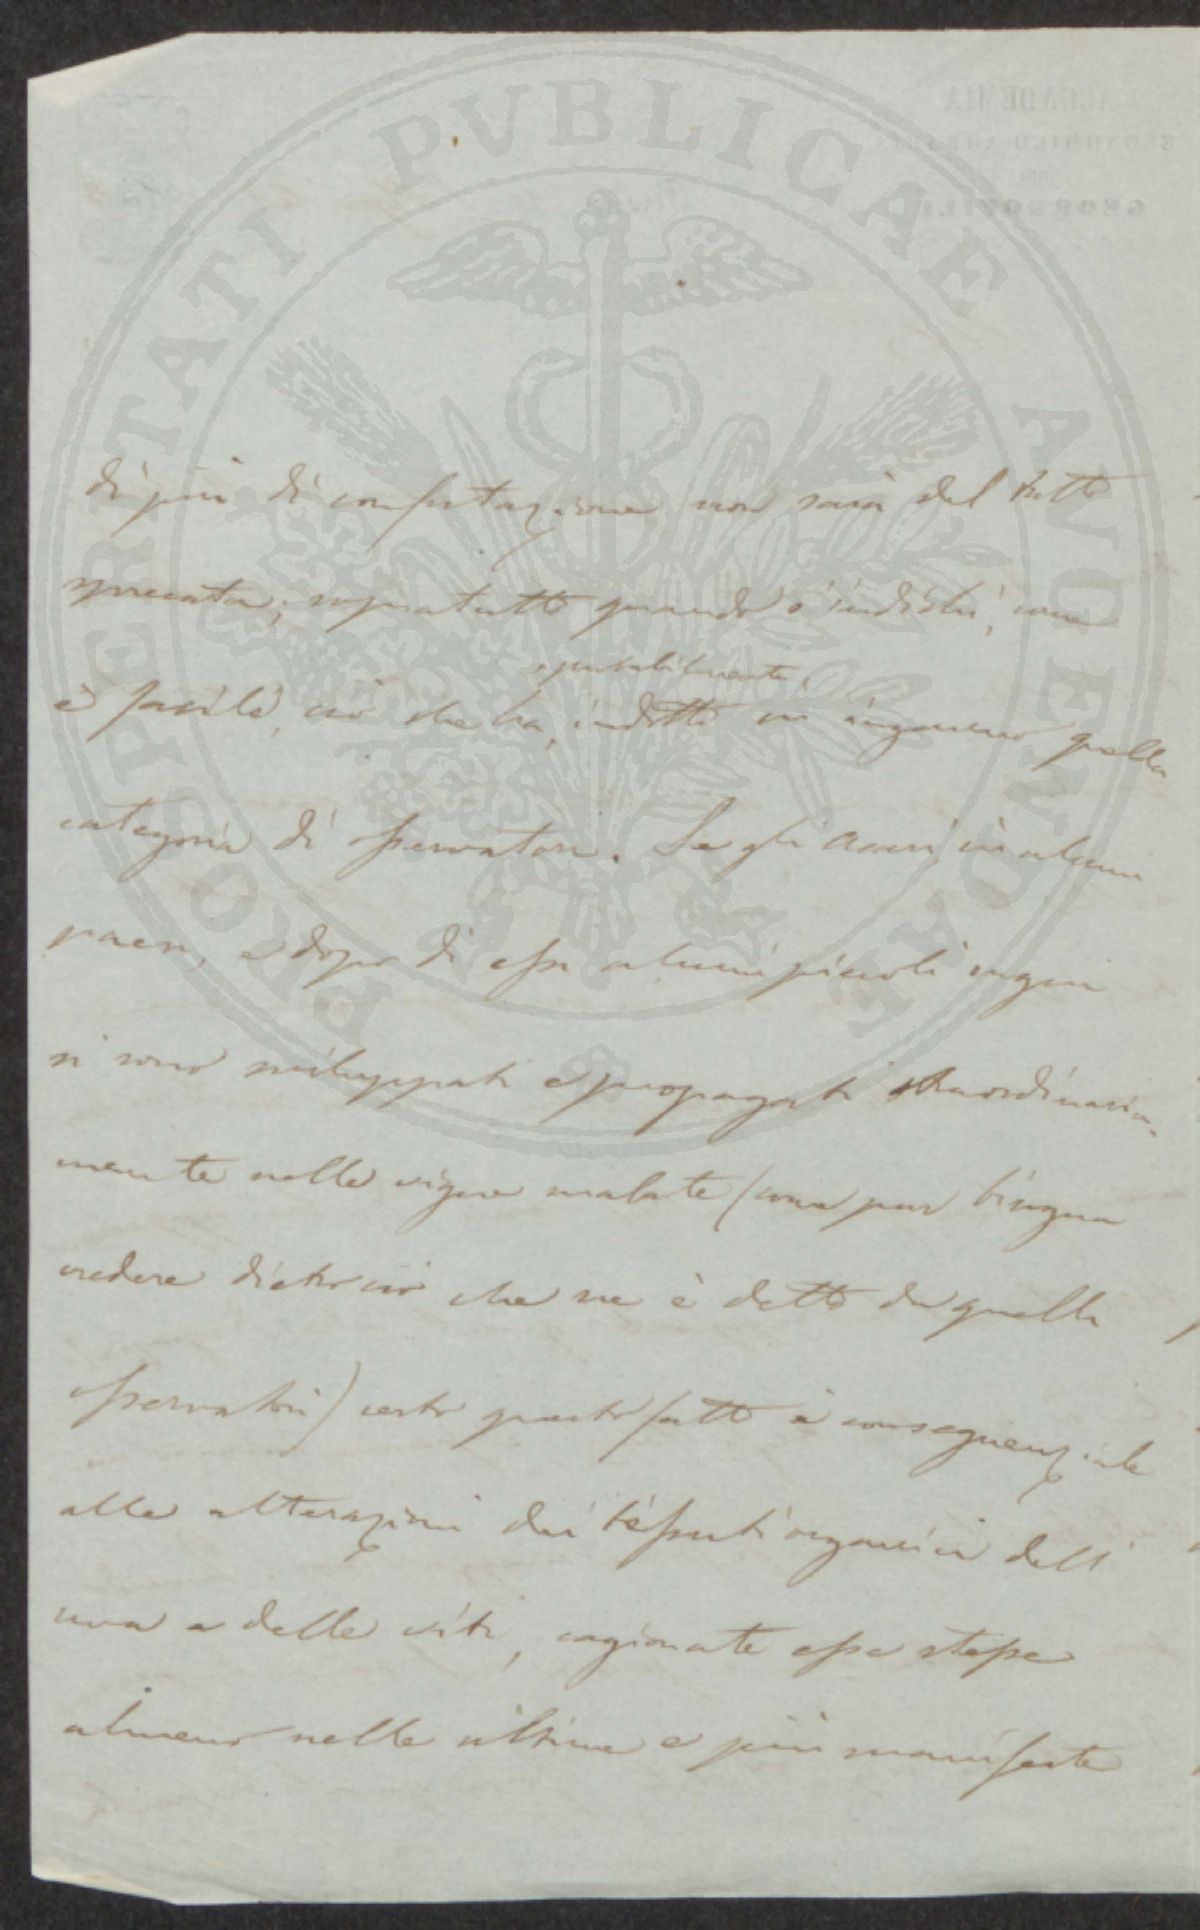 PROSPERITATI PVBLICAE AVGENDAE
ACCADEMIA
ECONOMICO-AGRARIA
DEI
GEORGOFILI
di più di confutazione non sarà del tutto
sprecata; sopratutto quando s'indichi, come
è facile, ciò che ha, indotto in inganno quella
probabilmente,
categoria di osservatori. Se gli acari, in alcuni
paesi, e dopo di essi alcuni piccoli
si sono sviluppati e propagati straordinaria-
mente nelle vigne malate (come pur bisogna
credere dietro ciò che ne è detto da quelli
osservatori) certo questo fatto è consequenziale
alle alterazioni dei tessuti organici dell'
uva e delle viti, cagionate esse stesse
almeno nelle ultime e più manifeste